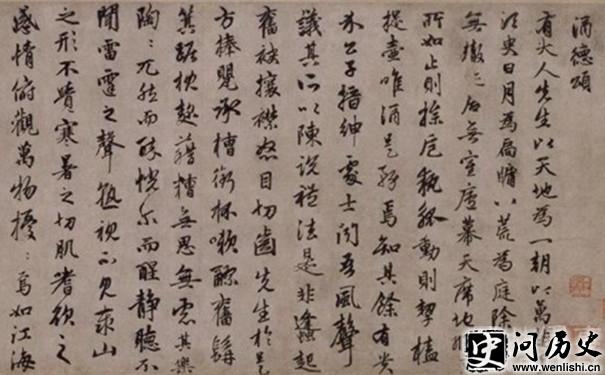 酒德頌
有大人先生以天地為一朝以萬期
為須臾日月為扃牖八荒為庭除
無轍跡居無室廬幕天席地
所如止則操卮執觚動則挈榼
提壺唯酒是務焉知其餘有貴
介公子搢紳處士聞吾風聲
議其所以陳說禮法是非蠭起
奮袂攘襟怒目切齒先生於是
方捧甖承槽銜杯嗽醪奮髯
箕踞枕麴藉糟無思無慮其樂
陶〻兀然而醉恍尔而醒靜聽不
聞雷霆之聲孰視不見泰山
之形不覺寒暑之切肌嗜欲之
感情俯觀萬物擾〻焉如江海
问历史
www.wenlishi.cn